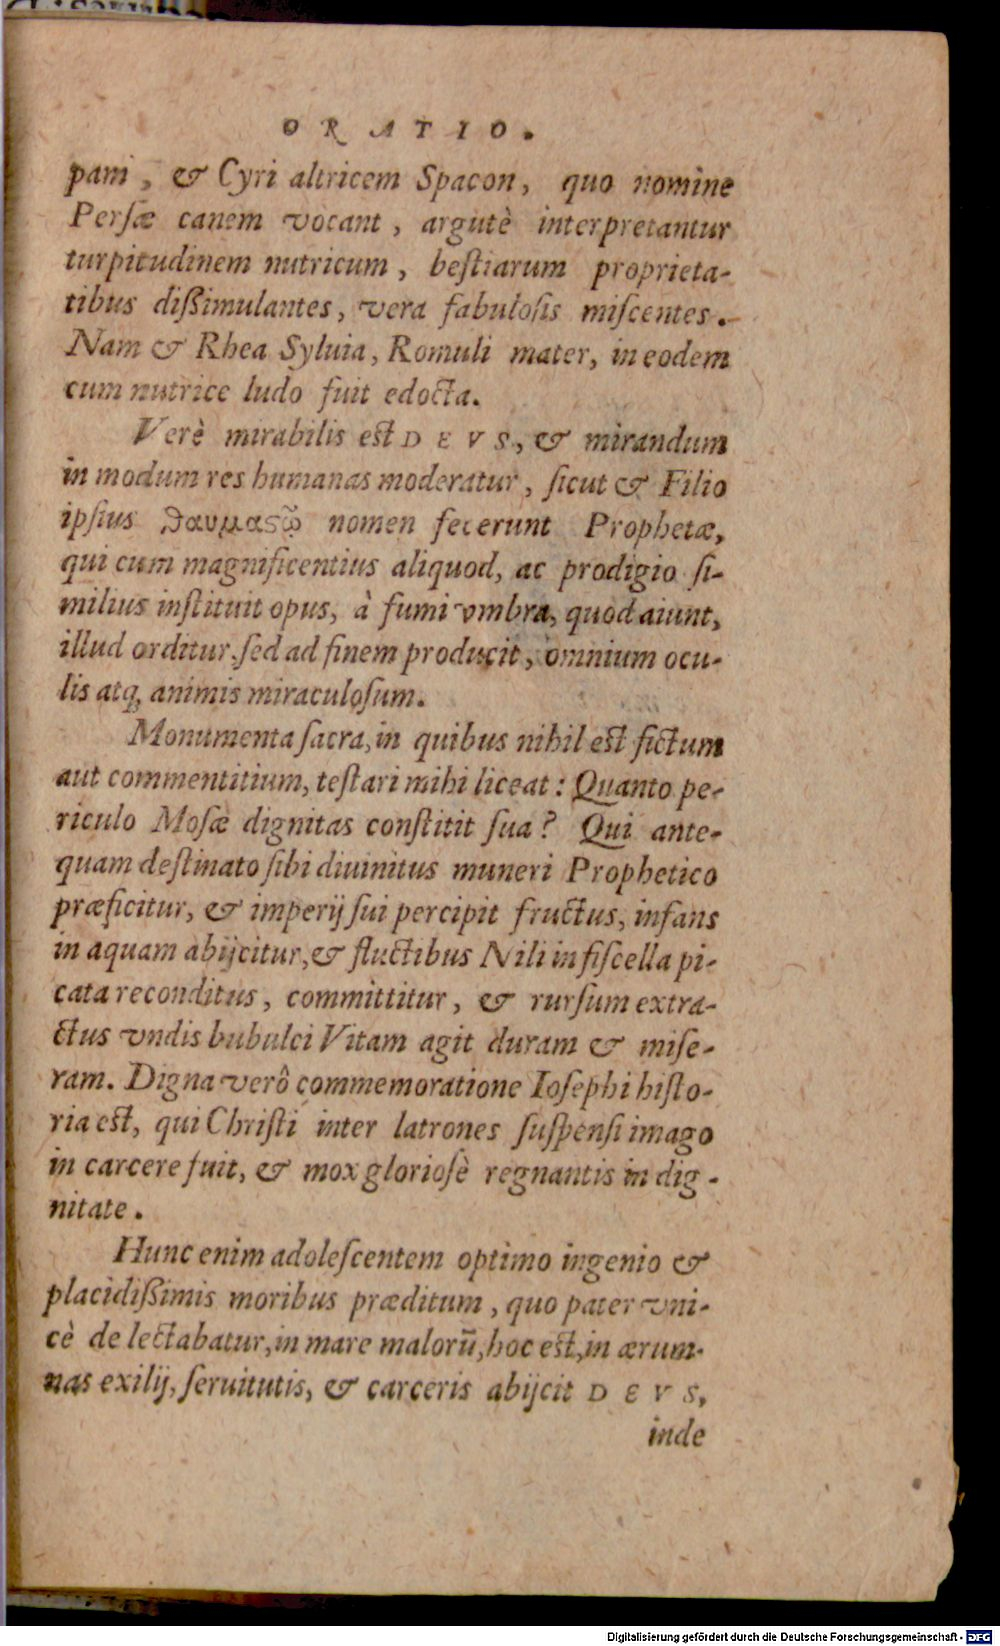 ORATIO.
pani, & Cyri altricem Spacon, quo nomine
Persæ canem vocant, argutè interpretantur
turpitudinem nutricum, bestiarum proprieta-
tibus dißimulantes, vera fabulosis miscentes.
Nam & Rhea Syluia, Romuli mater, in eodem
cum nutrice ludo fuit edocta.
Verè mirabilis est DEVS, & mirandum
in modum res humanas moderatur, sicut & Filio
ipsius θαυμαςῶ nomen fecerunt Prophetæ,
qui cum magnificentius aliquod, ac prodigio si-
milius instituit opus, à fumi vmbra, quod aiunt,
illud orditur. sed ad finem producit, omnium ocu-
lis atq, animis miraculosum.
Monumenta sacra, in quibus nihil est fictum
aut commentitium, testari mihi liceat: Quanto pe-
riculo Mosæ dignitas constitit sua? Qui ante-
quam destinato sibi diuinitus muneri Prophetico
præficitur, & imperij sui percipit fructus, infans
in aquam abijcitur, & fluctibus Nili in fiscella pi-
cata reconditus, committitur, & rursum extra-
ctus vndis bubulci Vitam agit duram & mise-
ram. Digna verô commemoratione Iosephi histo-
ria est, qui Christi inter latrones suspensi imago
in carcere fuit, & mox gloriosè regnantis in dig-
nitate.
Hunc enim adolescentem optimo ingenio &
placidißimis moribus præditum, quo pater vni-
cè delectabatur, in mare malorū, hoc est, in ærum-
nas exilij, seruitutis, & carceris abijcit DEVS,
inde
Digitalisierung gefördert durch die Deutsche Forschungsgemeinschaft - DFG